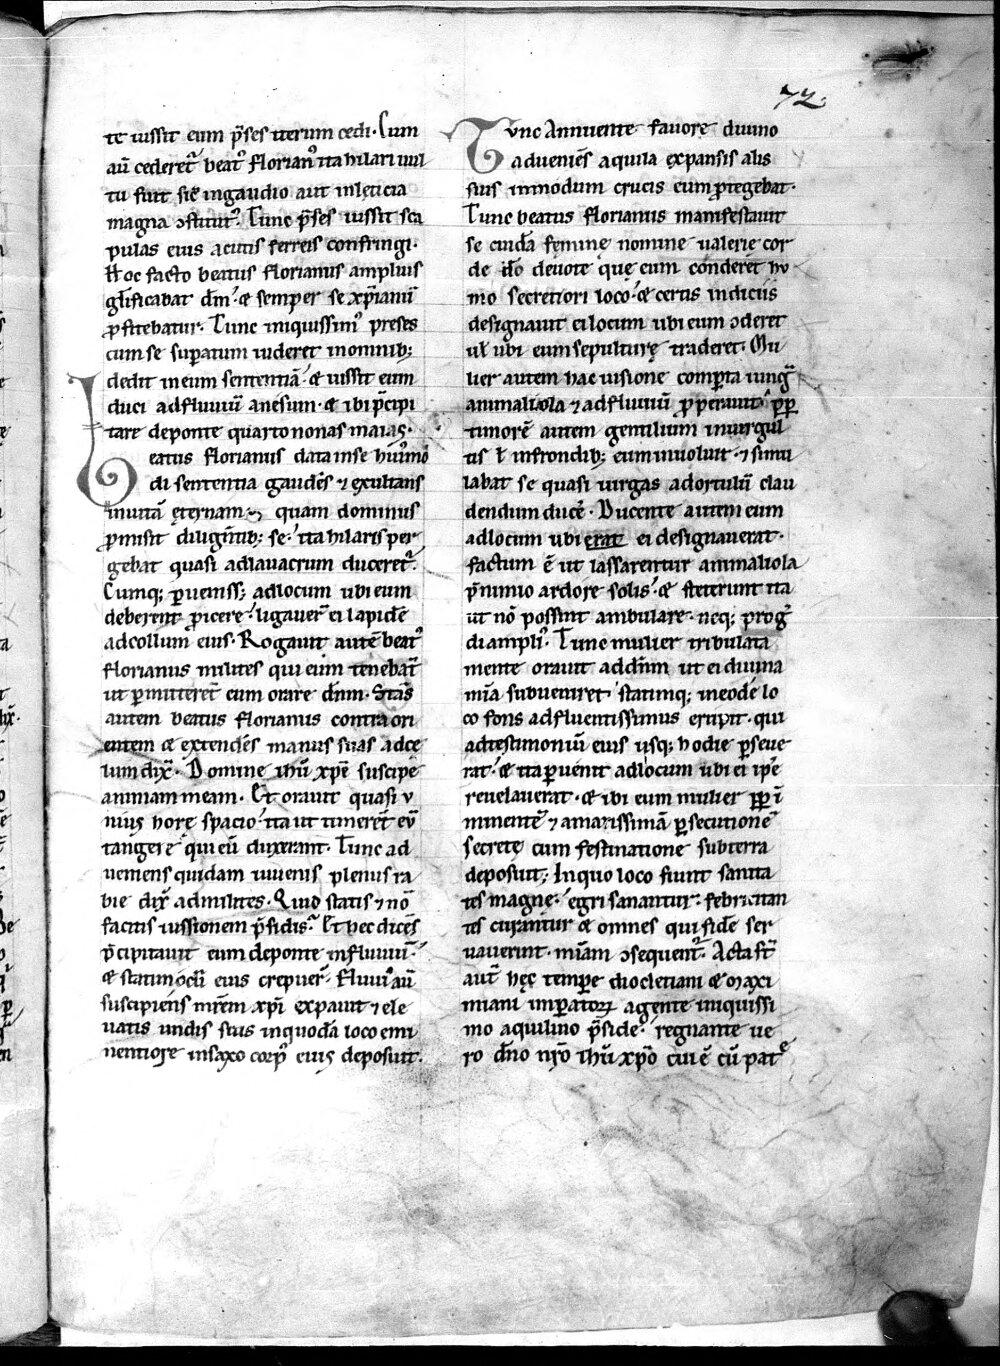 72.
te iussit eum p̄ses iterum cedi. Cum
aū cederet᷑ beatꝰ florianꝰ ita hilari uul
tu fuit sic̄ ingaudio aut inleticia
magna ɔstitutꝰ. Tunc p̄ses iussit sca
pulas eius acutis ferreis confringi.
Hoc facto beatus florianus amplius
gl̄ificabat dm̄. & semper se xp̄ianū
ꝓfitebatur. Tunc iniquissimꝰ preses
cum se suꝑatum uideret inomnib;
dedit ineum sententiā. & iussit eum
duci adfluuiū anesum. & ibi p̄cipi
tare deponte quarto nonas maias.
Beatus florianus data inse huiꝰmo
di sententia gaudēs ⁊ exultans
inuitā ęternam quam dominus
ꝓmisit diligētib; se. ita hilaris per
gebat quasi adlauacrum duceret᷑.
Cumq; ꝑueniss; adlocum ubi eum
deberent ꝓicere. ligauer̄ ei lapidē
adcollum eius. Rogauit autē beatꝰ
florianus milites qui eum tenebāt
ut ꝑmitteret eum orare dn̄m. Stās
autem beatus florianus contra ori
entem & extendēs manus suas adce
lum dix̄. Domine ihū xp̄e suscipe
animam meam. Et orauit quasi v
nius horę spacio. ita ut timerēt eū
tangere qui eū duxerant. Tunc ad
ueniens quidam iuuenis plenus ra
bie dix̄ admilites. Quid statis ⁊ nō
facitis iussionem p̄sidis. Et hec dicēs
p̄cipitauit eum deponte influuiū.
& statim oc̄li eius crepuer̄. Fluuiꝰ aū
suscipiens mr̄em xp̄i expauit ⁊ ele
uatis undis suis inquodā loco emi
nentiore insaxo corpꝰ eius deposuit.
Tvnc Annuente fauore diuino
adueniēs aquila expansis alis
suis inmodum crucis eum ꝓtegebat.
Tunc beatus florianus manifestauit
se cuidā feminę nomine ualerie cor
de dō deuote quę eum conderet hu
mo secretiori loco. & certis indiciis
designauit ei locum ubi eum ɔderet
ul̄ ubi eum sepulturę traderet. Mu
lier autem hac uisione comꝑta iungꝰ
animaliola ⁊ adfluuiū ꝓꝑauit. ꝓpꝑ
timorē autem gentilium inuirgul
tis ł infrondib; eum inuoluit. ⁊ simu
labat se quasi uirgas adortulū clau
dendum ducē. Ducente autem eum
adlocum ubi erat ei designauerat.
factum ē ut lassarentur animaliola
p̄nimio ardore solis. & steterunt ita
ut nō possint ambulare. neq; progꝰ
di ampliꝰ. Tunc mulier tribulata
mente orauit addn̄m ut ei diuina
mīa subueniret. statimq; ineodē lo
co fons adfluentissimus erupit. qui
adtestimoniū eius usq; hodie ꝑseue
rat. & ita ꝑuenit adlocum ubi ei ip̄e
reuelauerat. & ibi eum mulier ꝓpꝑ ī
minentē ⁊ amarissimā ꝑsecutionē
secrete cum festinatione subterra
deposuit; Inquo loco fiunt sanita
tes magne. egri sanantur. febricitan
tes curantur & omnes qui fide ser
uauerint. mīam ɔsequent᷑. Acta sт̄
aut̄ hęc tempore diocletiani & maxi
miani imperatorꝝ agente iniquissi
mo aquilino p̄side. regnante ue
ro dn̄o nr̄o ihū xp̄o cui ē cū patre